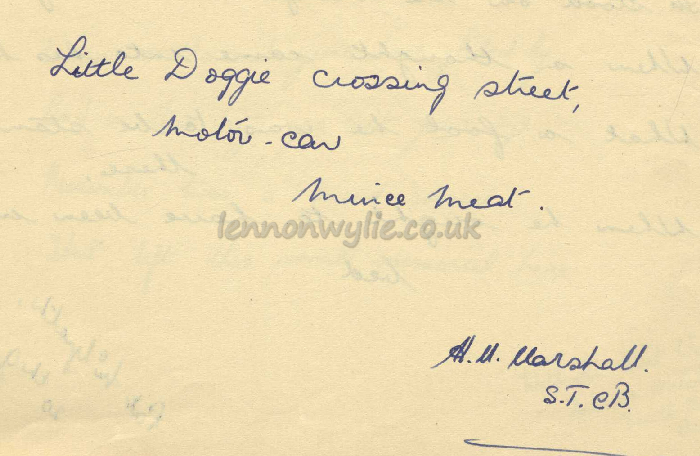 Little Doggie crossing street,
Motor-car
Mince Meat.
lennonwylie.co.uk
H.M. Marshall.
S.T.C.B.